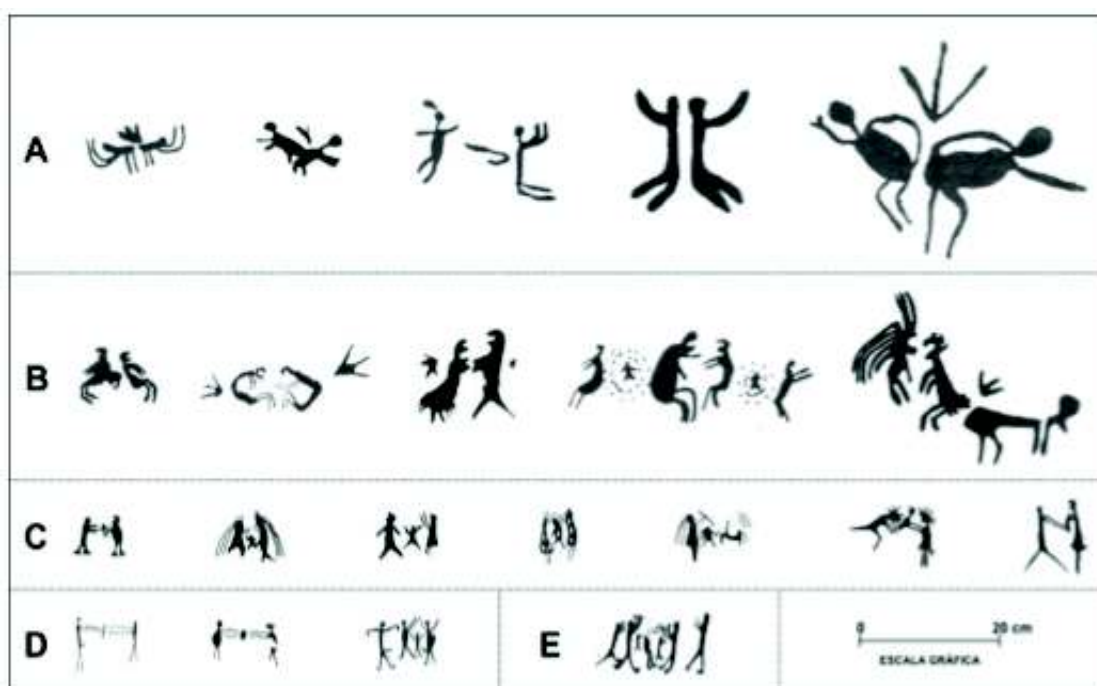 A
B
C
D
E
0 20 cm
ESCALA GRÁFICA